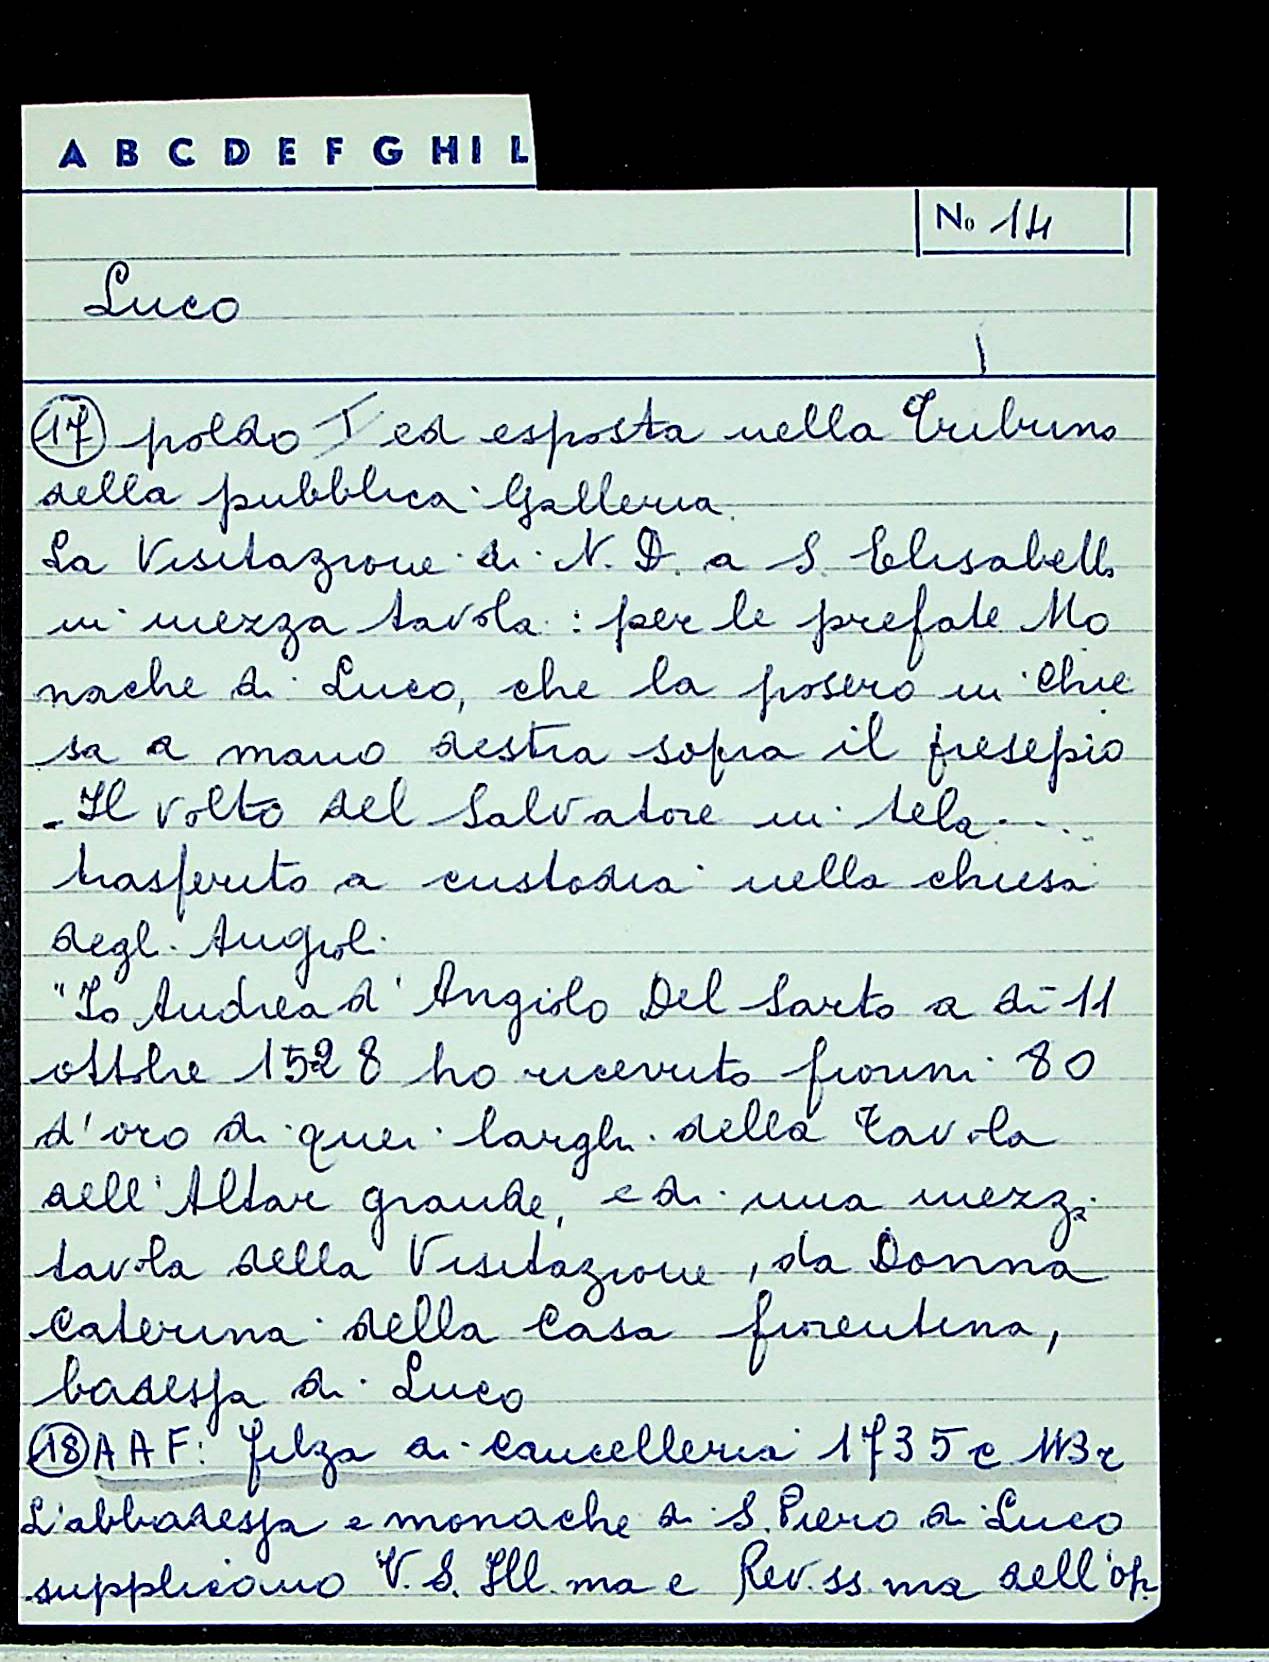 A B C D E F G H I L
No 14
Luco
17 poldo I ed esposta nella Tribuna
della pubblica Galleria.
La Visitazione di N. D. a S. Elisabetta
in mezza tavola : per le prefate Mo
nache di Luco, che la posero in Chie
sa a mano destra sopra il presepio
- Il volto del Salvatore in tela ....
trasferito a custodia nella chiesa
degl. Angioli
"Io Andrea d'Angiolo Del Sarto a dì 11
ottobre 1528 ho ricevuto fiorini 80
d'oro di quei larghi della Tavola
dell'Altar grande, e di una mezza
tavola della Visitazione, da Donna
Caterina della Casa fiorentina,
badessa di Luco
18 A A F: filza di cancelleria 1735 c
L'abbadessa e monache di S. Piero di Luco
supplicano V. S. Ill.ma e Rev.ss.ma dell'op.